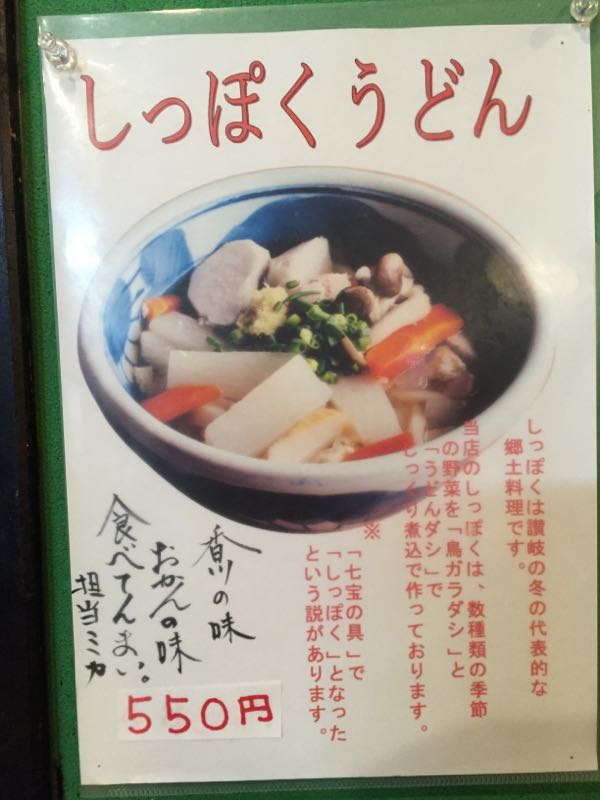 しっぽくうどん
しっぽくは讃岐の冬の代表的な
郷土料理です。
当店のしっぽくは、数種類の季節
の野菜を「鳥ガラダシ」と
「うどんダシ」で
じっくり煮込で作っております。
※
「七宝の具」で
「しっぽく」となった
という説があります。
香川の味
おかんの味
食べてんまい。
担当ミカ
550円